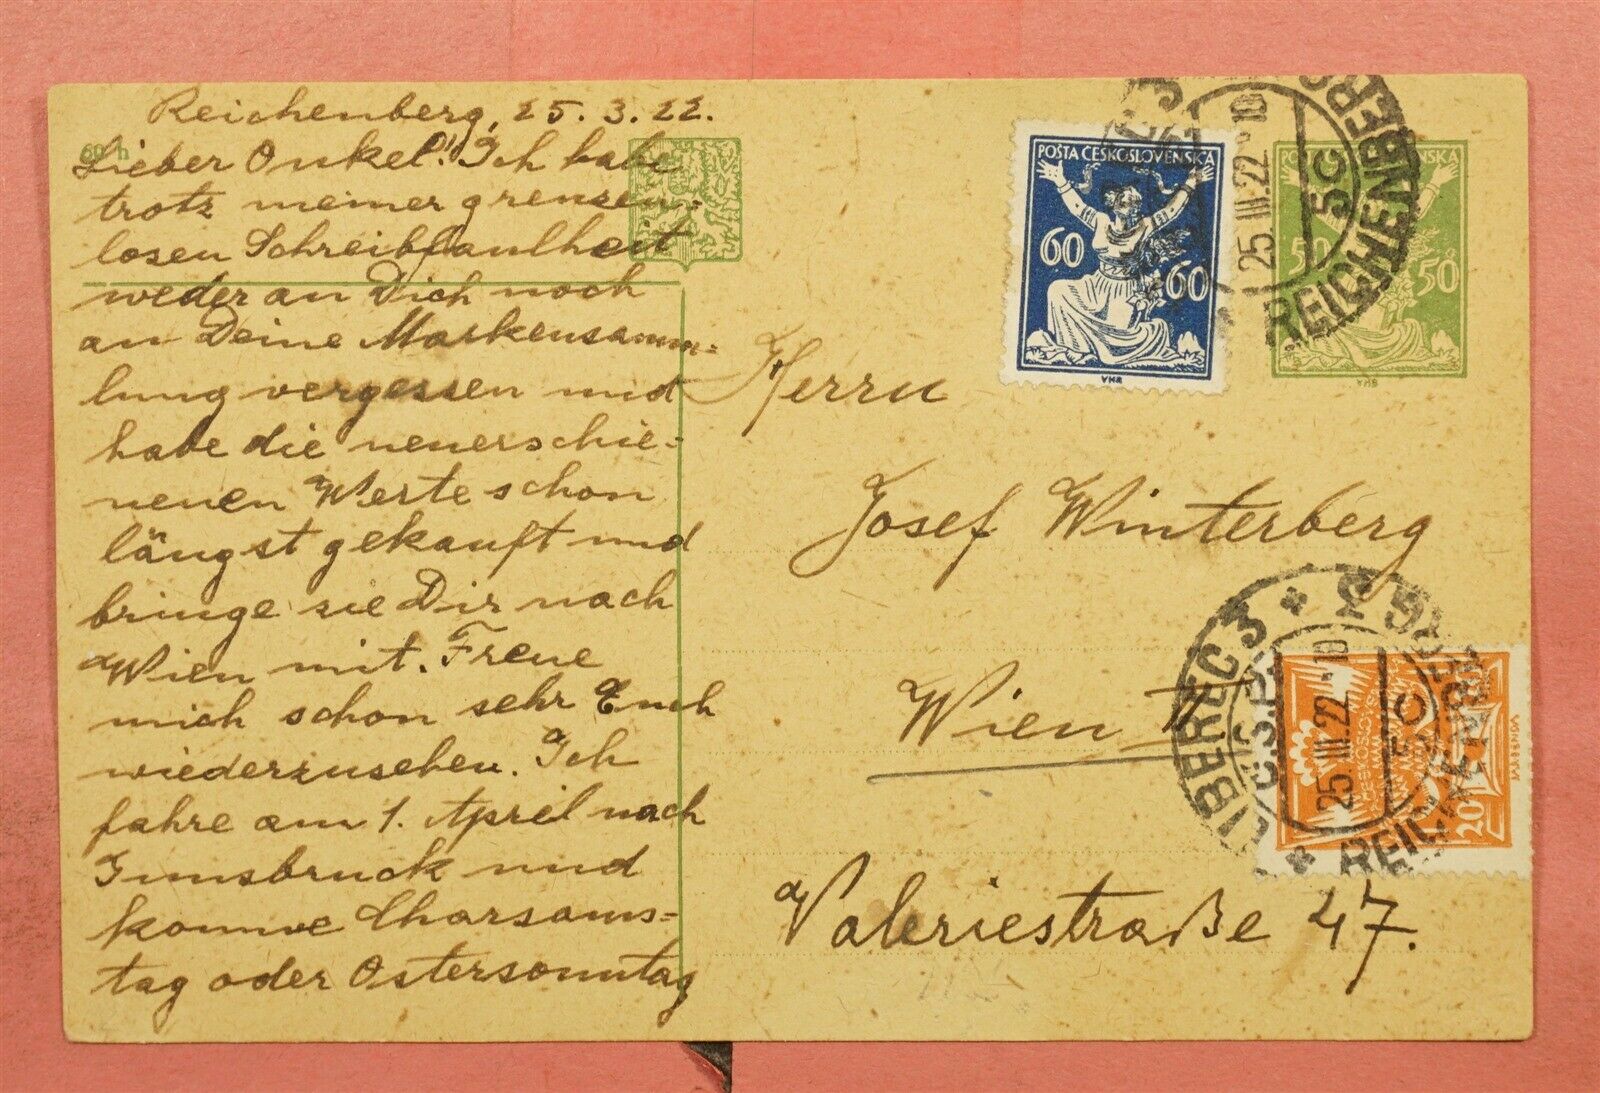 Reichenberg, 25.3.22.
60 h
Lieber Onkel! Ich habe
trotz meiner grenzen-
losen Schreibfaulheit
weder an Dich noch
an Deine Markensamm-
lung vergessen und
habe die neuerschie-
nenen Werte schon
längst gekauft und
bringe sie Dir nach
Wien mit. Freue
mich schon sehr Euch
wiederzusehen. Ich
fahre am 1. April nach
Innsbruck und
komme Charsams-
tag oder Ostersonntag
POŠTA ČESKOSLOVENSKÁ
60 60
VHB
50 50
25.III.22 -10
5c
REICHENBERG
Herrn
Josef Winterberg
Wien II
Valeriestraße 47.
LIBEREC 3
Č.S.P.
25.III.22 -10
5c
REICHENBERG
20